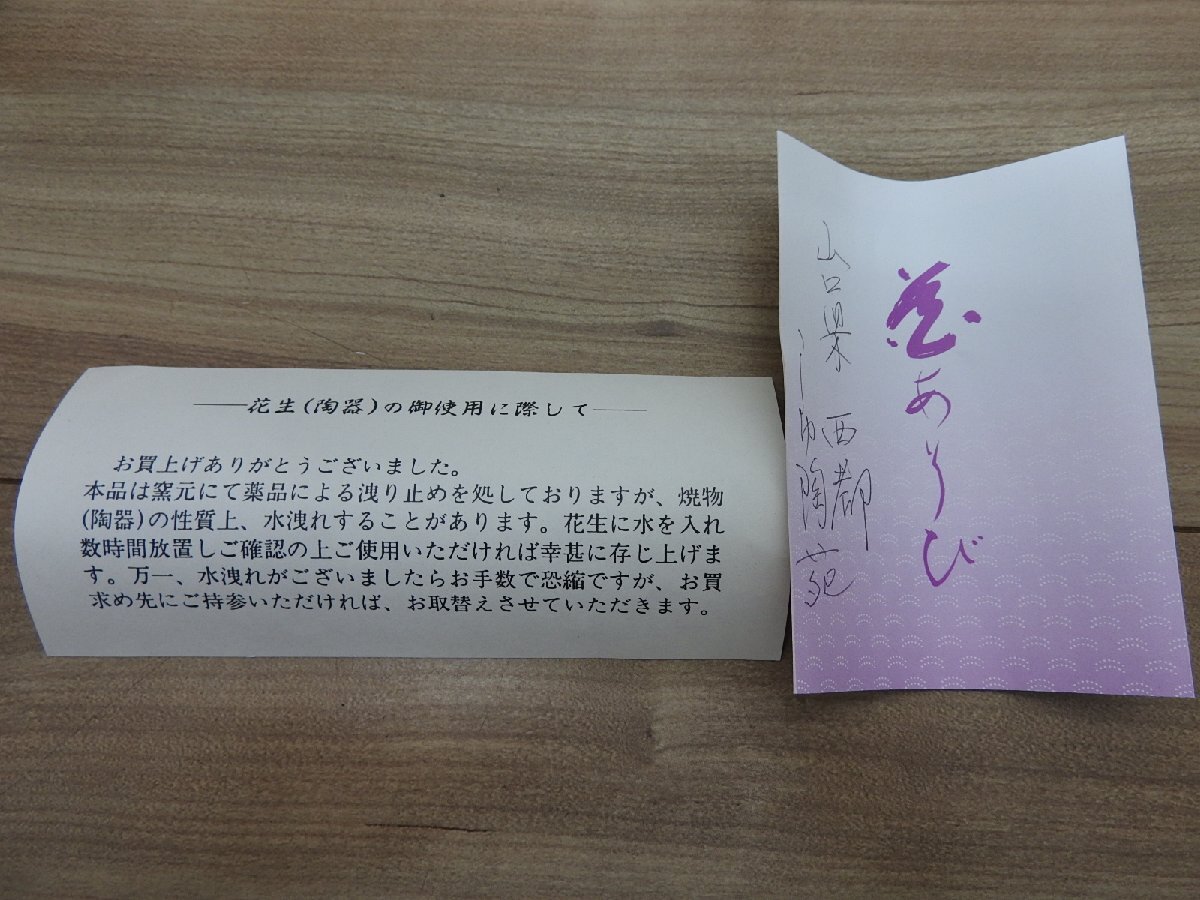 ——花生(陶器)の御使用に際して——
お買上げありがとうございました。
本品は窯元にて薬品による洩り止めを処しておりますが、焼物
(陶器)の性質上、水洩れすることがあります。花生に水を入れ
数時間放置しご確認の上ご使用いただければ幸甚に存じ上げま
す。万一、水洩れがございましたらお手数で恐縮ですが、お買
求め先にご持参いただければ、お取替えさせていただきます。
花あそび
山口県 西都
陶苑